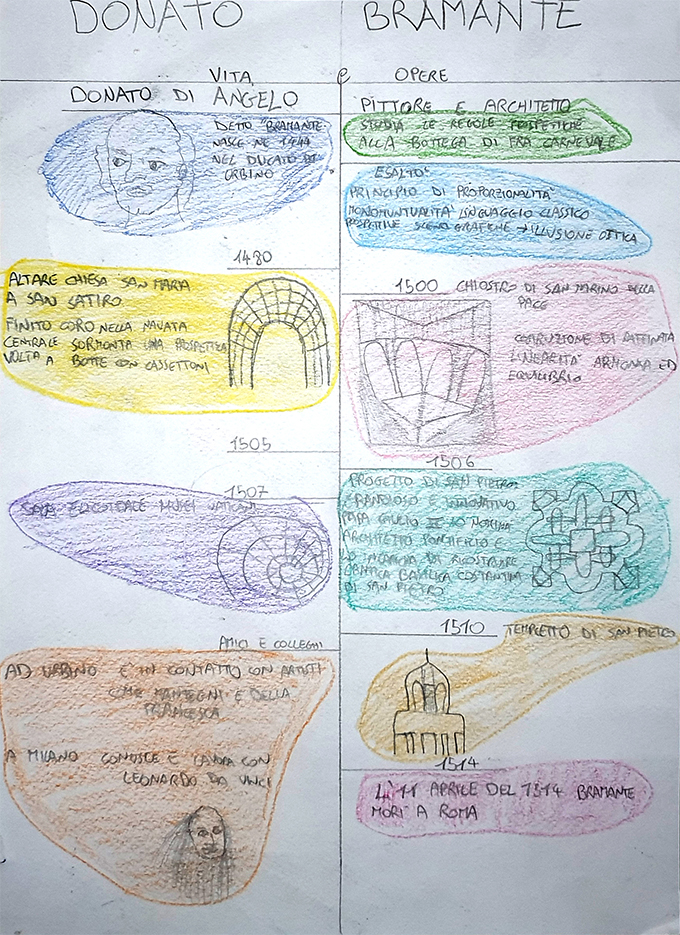 DONATO BRAMANTE
VITA e OPERE
DONATO DI ANGELO
DETTO "BRAMANTE
NASCE NE 1444
NEL DUCATO DI
URBINO
PITTORE E ARCHITETTO
STUDIA LE REGOLE PROSPETTICHE
ALLA BOTTEGA DI FRA CARNEVALE
ESALTO'
PRINCIPIO DI PROPORZIONALITA'
MONOMUNTUALITA' LINGUAGGIO CLASSICO
PROSPETTIVE SCENOGRAFICHE → ILLUSIONE OTTICA
1480
ALTARE CHIESA SAN MARIA
A SAN SATIRO
FINITO CORO NELLA NAVATA
CENTRALE SORMONTA UNA PROSPETTICA
VOLTA A BOTTE CON CASSETTONI
1500 CHIOSTRO DI SAN MARINO DELLA
PACE
COSTRUZIONE DI RAFFINATA
LINEARITA' ARMONIA ED
EQUILIBRIO
1505
1507
SCALA ELICOIDALE MUSEI VATICANI
1506
PROGETTO DI SAN PIETRO
GRANDIOSO E INNOVATIVO
PAPA GIULIO II LO NOMINA
ARCHITETTO PONTIFICIO E
LO INCARICA DI RICOSTRUIRE
BASILICA COSTANTINA
DI SAN PIETRO
1510 TEMPIETTO DI SAN PIETRO
AMICI E COLLEGHI
AD URBINO E' IN CONTATTO CON ARTISTI
COME MANTEGNI E DELLA
FRANCESCA
A MILANO CONOSCE E LAVORA CON
LEONARDO DA VINCI
1514
L'11 APRILE DEL 1514 BRAMANTE
MORI' A ROMA